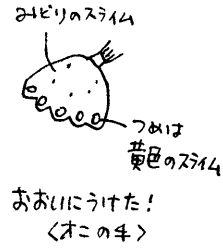 みどりのスライム
つめは
黄色のスライム
おおいにうけた!
<オニの手>